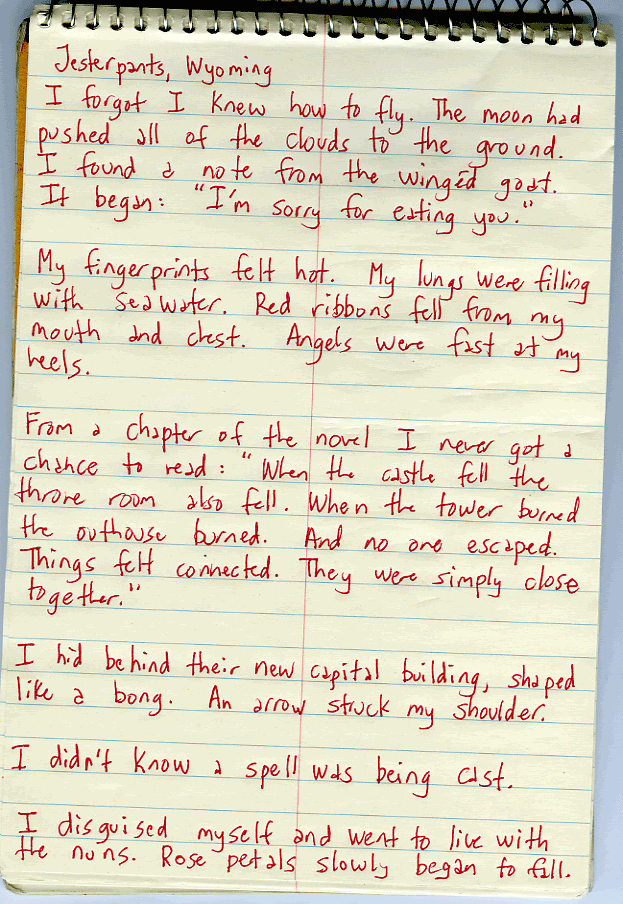 Jesterpants, Wyoming
I forgot I knew how to fly. The moon had
pushed all of the clouds to the ground.
I found a note from the winged goat.
It began: "I'm sorry for eating you."
My fingerprints felt hot. My lungs were filling
with seawater. Red ribbons fell from my
mouth and chest. Angels were fast at my
heels.
From a chapter of the novel I never got a
chance to read: "When the castle fell the
throne room also fell. When the tower burned
the outhouse burned. And no one escaped.
Things felt connected. They were simply close
together."
I hid behind their new capital building, shaped
like a bong. An arrow struck my shoulder.
I didn't know a spell was being cast.
I disguised myself and went to live with
the nuns. Rose petals slowly began to fall.